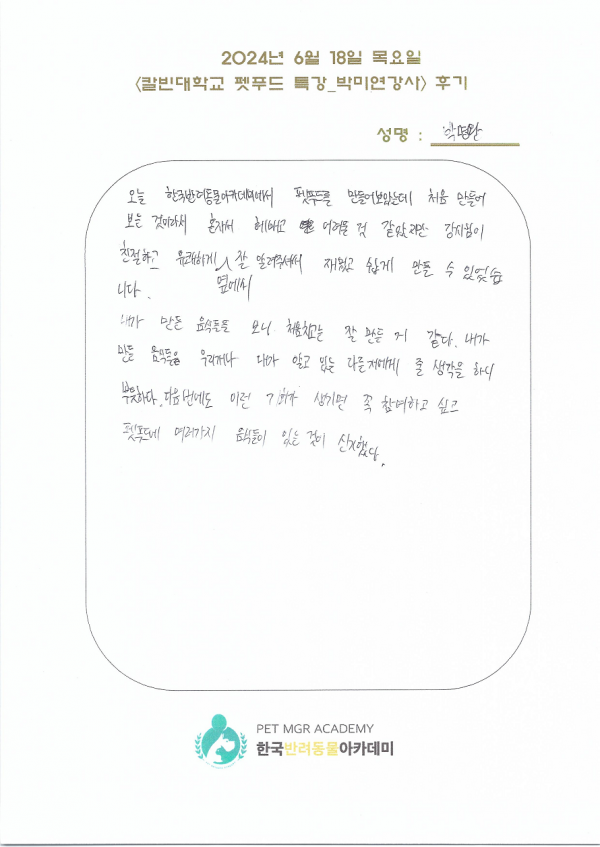 2024년 6월 18일 목요일
<칼빈대학교 펫푸드 특강_박미연강사> 후기
성명 :
오늘 한국반려동물아카데미에서 펫푸드를 만들어보았는데 처음 만들어
보는 것이라서 혼자서 헤매고 어려울 것 같았지만 강사님이
친절하고 유쾌하게 옆에서 잘 알려주셔서 재밌고 쉽게 만들 수 있었습
니다.
내가 만든 음식들을 보니 처음치고는 잘 만든 거 같다. 내가
만든 음식들을 우리개나 내가 알고 있는 다른개에게 줄 생각을 하니
뿌듯하다. 다음번에도 이런 기회가 생기면 꼭 참여하고 싶고
펫푸드에 여러가지 음식들이 있는 것이 신기했다.
PET MGR ACADEMY
한국반려동물아카데미